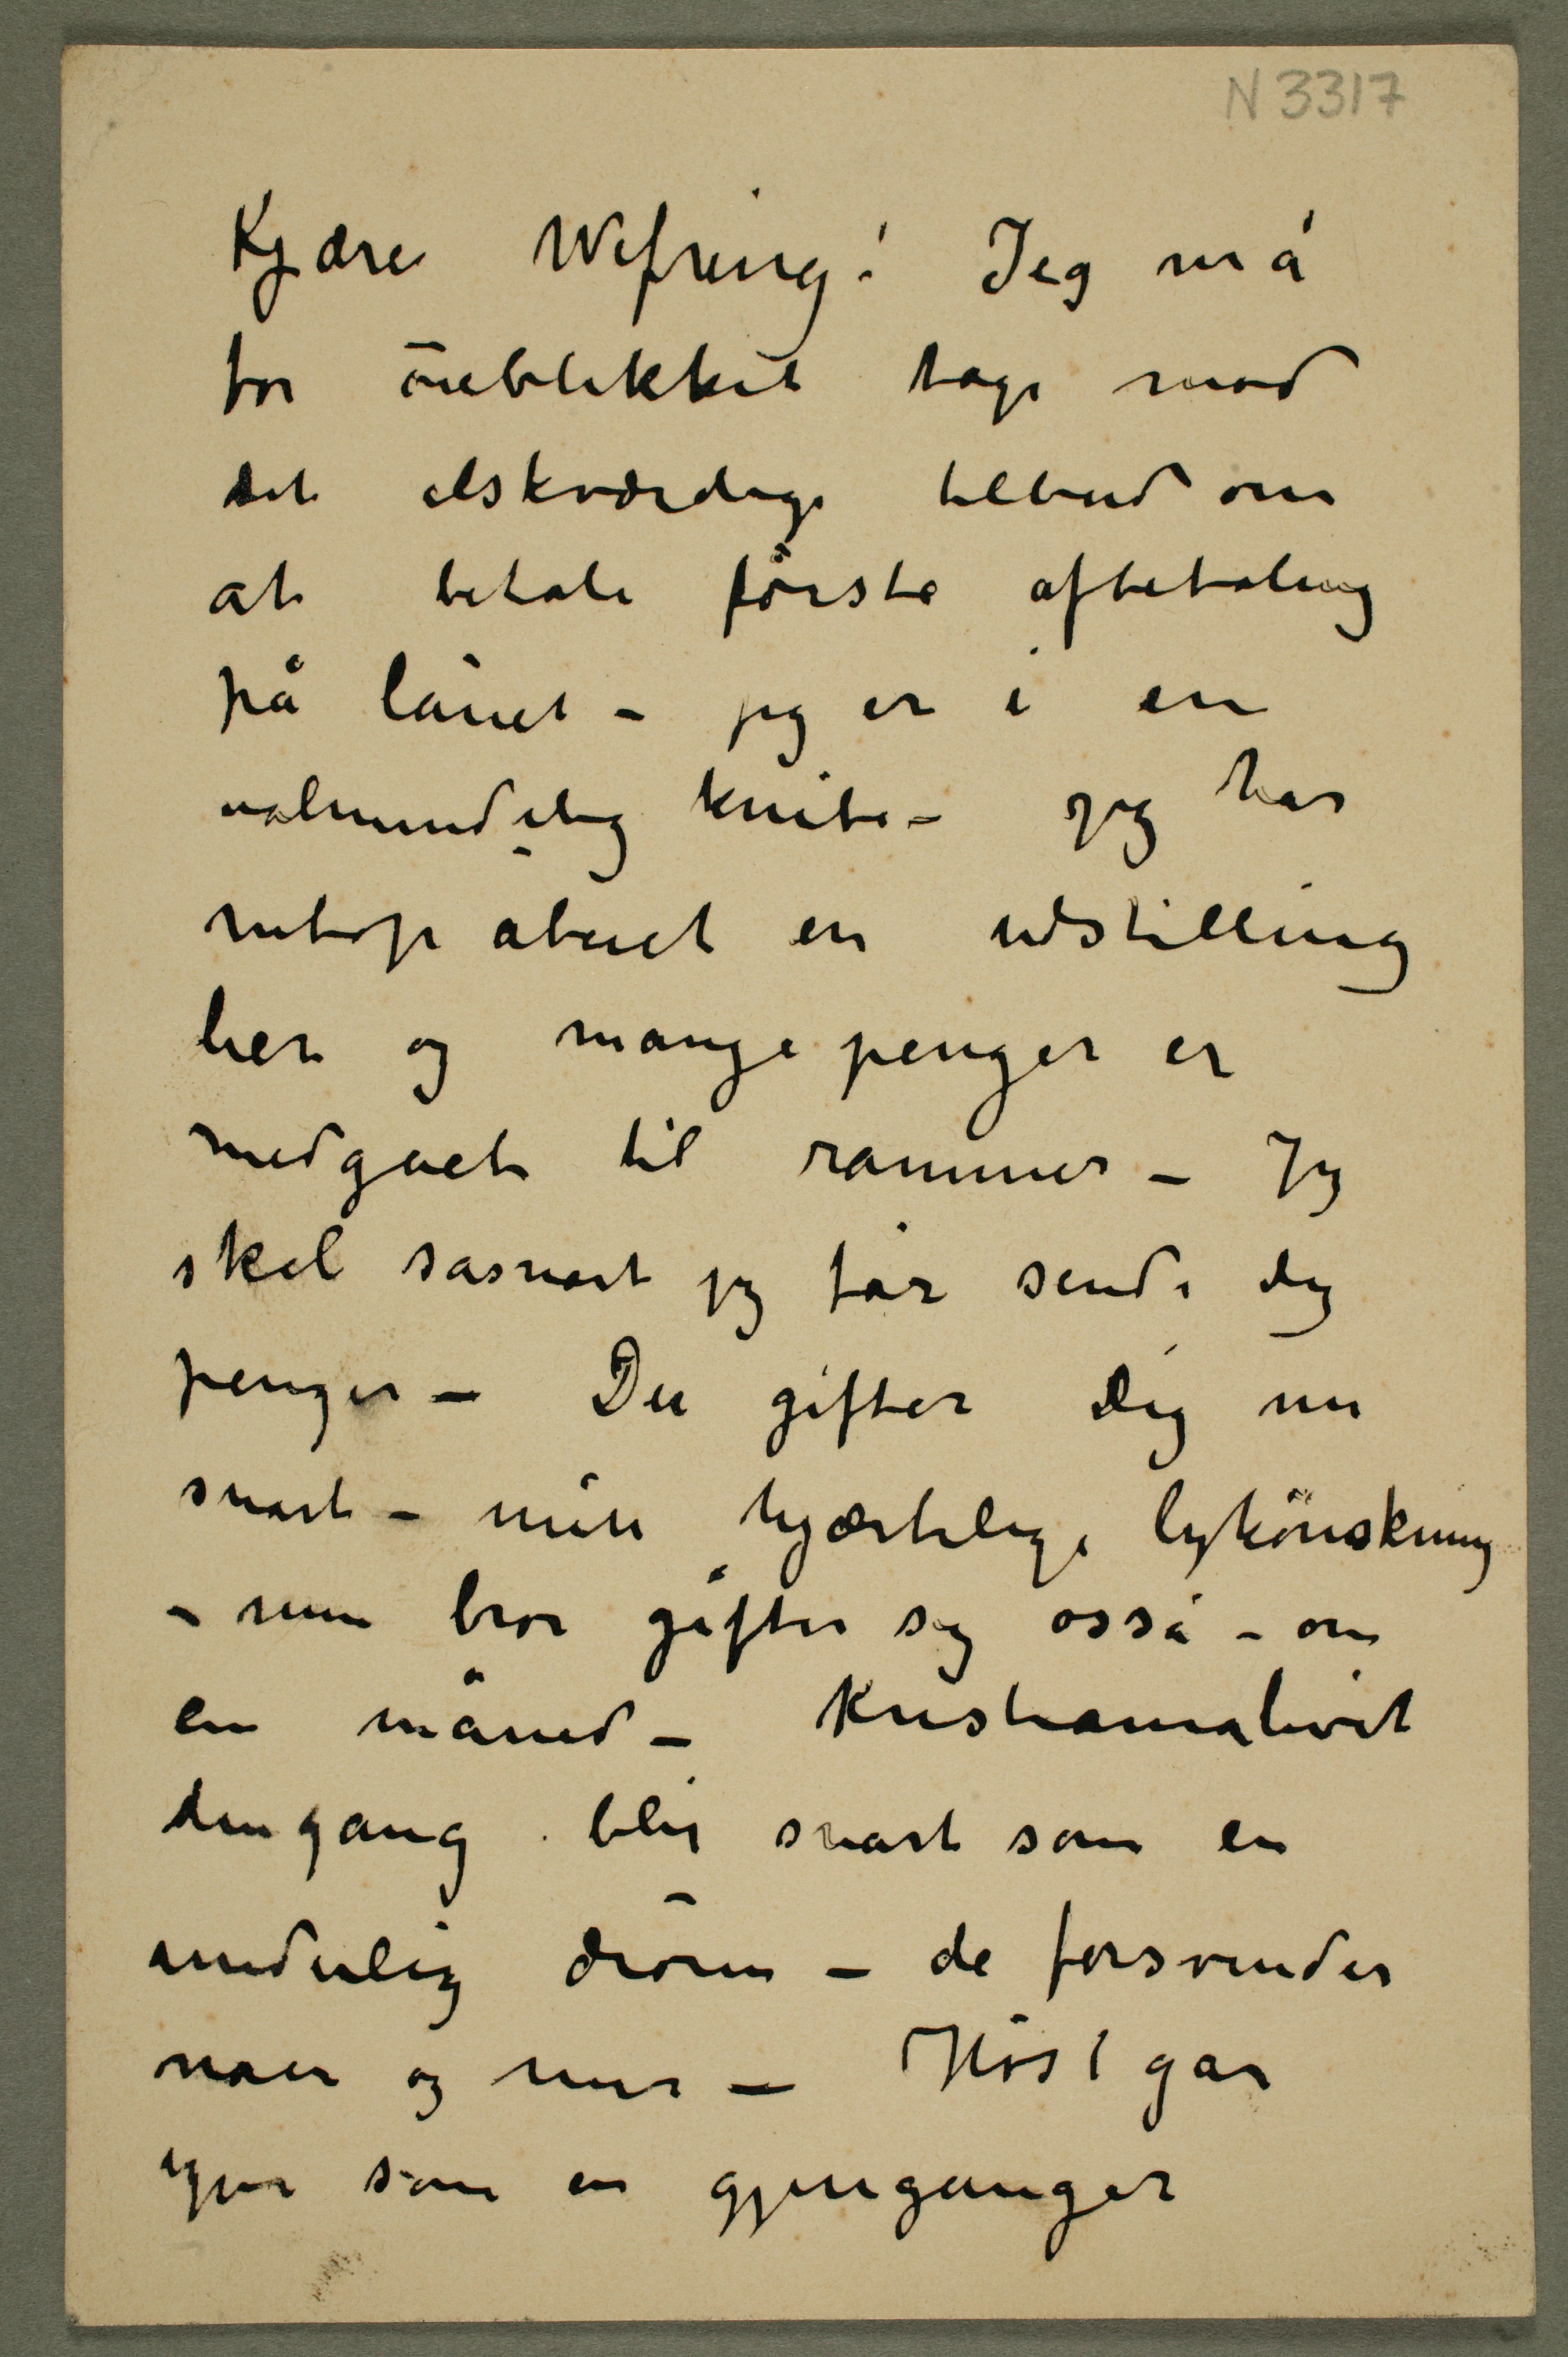 N 3317
Kjære Wefring! Jeg må
for öieblikket tage mod
det elskværdige tilbud om
at betale förste afbetaling
på lånet – jeg er i en
almindelig knibe – jeg har
netop åbnet en udstilling
her og mange penger er
medgået til rammer – Jeg
skal såsnart jeg får sende dig
penger – Du gifter Dig nu
snart – min hjærtelige lykönskning
– min bror gifter sig osså – om
en måned – Kristianialivet
dengang blir snart som en
underlig dröm – de forsvinder
noen og nus – Höst går
igjen som en gjenganger